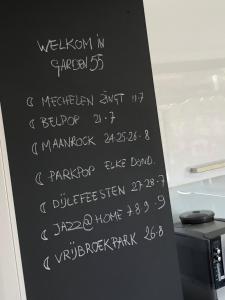 WELKOM IN
GARDEN 55
MECHELEN ZINGT 11-7
BELPOP 21-7
MAANROCK 24-25-26-8
PARKPOP ELKE DOND.
DIJLEFEESTEN 27-28-7
JAZZ@HOME 7 8 9 -9
VRIJBROEKPARK 26-8